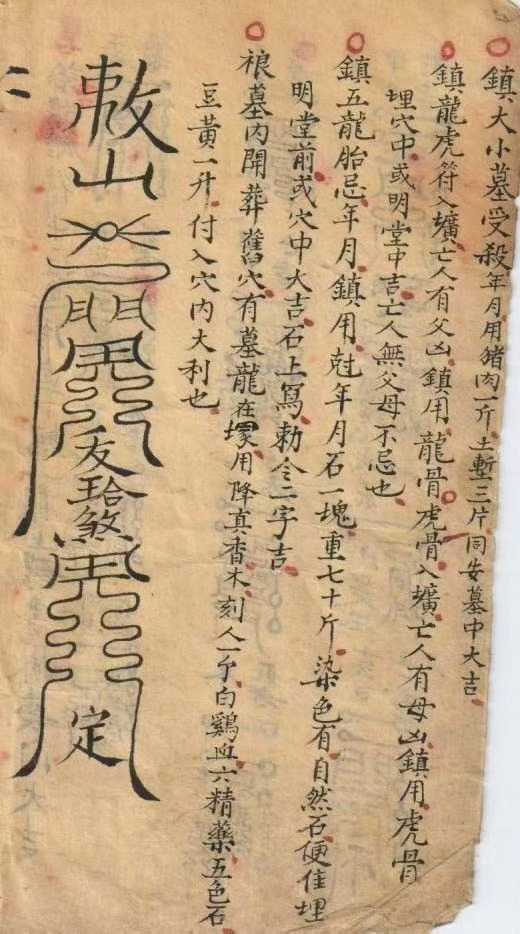 鎮大小墓受殺年月用猪肉一斤土塹三片同安墓中大吉
鎮龍虎符入壙亡人有父凶鎮用龍骨虎骨入壙亡人有母凶鎮用虎骨
埋穴中或明堂中吉亡人無父母不忌也
鎮五龍胎忌年月鎮用尅年月石一塊重七十斤染色有自然石便佳埋
明堂前或穴中大吉石上寫勅令二字吉
墓内開葬舊穴有墓龍在塚用降真香木刻人一个白鷄血六精藥五色石
豆黃一升付入穴内大利也
敕山
定